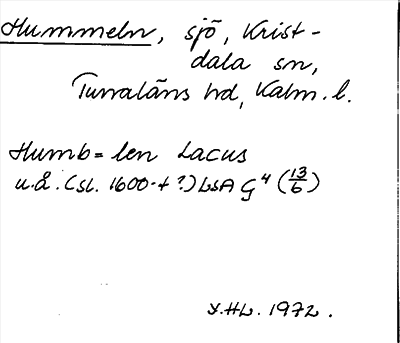 Hummeln, sjö, Krist-
dala sn,
Tunaläns hd, Kalm. l.
Humb=len Lacus
u.å. (sl. 1600-t ?) LSA G4 (13/6)
Y.HL. 1972.